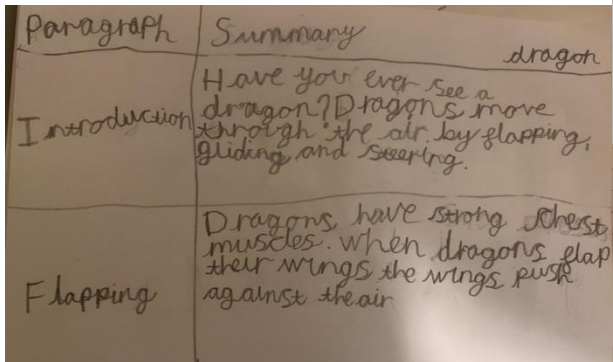 Paragraph Summary
dragon
Introduction
Have you ever see a
dragon? Dragons move
through the air by flapping,
gliding and steering.
Flapping
Dragons have strong scherst
muscles. when dragons flap
their wings the wings push
against the air